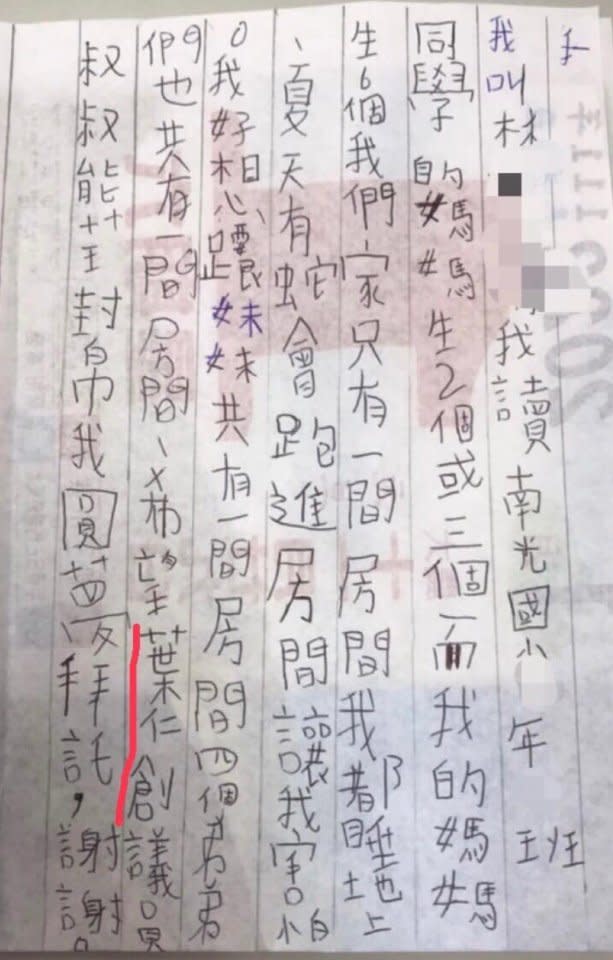 我叫林 我讀南光國小 年 班
同學的媽媽生2個或三個而我的媽媽
生6個我們家只有一間房間我都睡地上
、夏天有蛇會跑進房間讓我害怕
。我好想要跟妹妹共有一間房間四個弟弟
們也共有一間房間、希望葉仁創議員
叔叔能幫我圓夢拜託,謝謝。